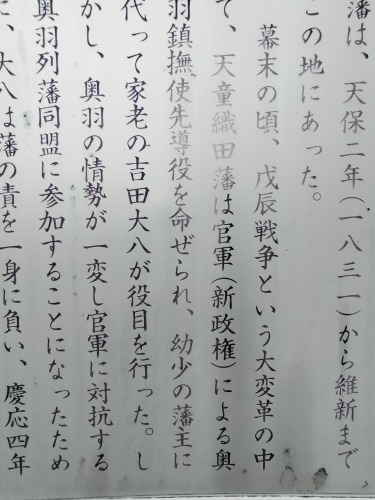 藩は、天保二年(一八三一)から維新まで
この地にあった。
幕末の頃、戊辰戦争という大変革の中
て、天童織田藩は官軍(新政権)による奥
羽鎮撫使先導役を命ぜられ、幼少の藩主に
代って家老の吉田大八が役目を行った。し
かし、奥羽の情勢が一変し官軍に対抗する
奥羽列藩同盟に参加することになったため
に、大八は藩の責を一身に負い、慶応四年